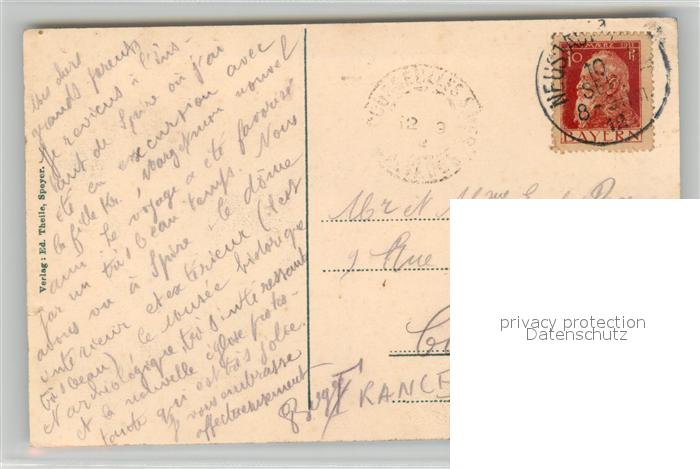 Mes chers
grands parents
Je reviens à l'ins-
tant de Spire où j'ai
été en excursion avec
la fille Kr., Margot mon nouvel
ami. Le voyage a été favorisé
par un très beau temps. Nous
avons vu à Spire le dôme
intérieur et extérieur (c'est
très beau) le musée historique
et archéologique très intéressant
et la nouvelle église protes-
tante qui est très jolie.
Je vous embrasse
affectueusement
Verlag: Ed. Theile, Speyer.
12 9
MÄRZ 1911
10
BAYERN
NEUST
10
8
12
Mr et Mme
9 Rue
FRANCE
privacy protection
Datenschutz